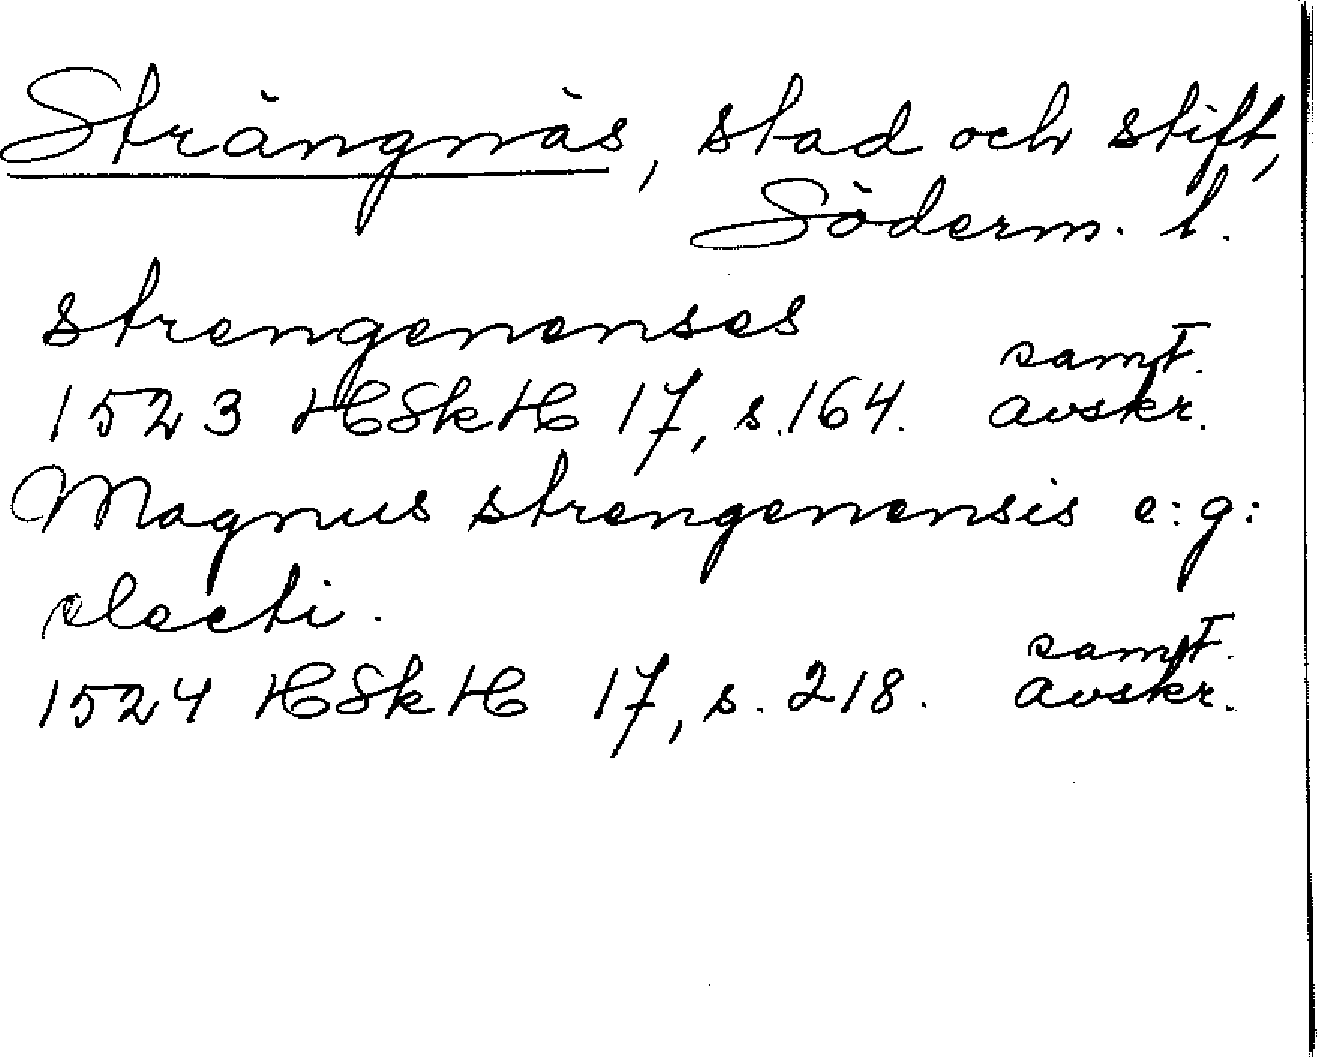 Strängnäs, stad och stift,
Söderm. l.
strengenenses
samt.
1523 HSkH 17, s.164. avskr.
Magnus strengenensis e:g:
electi.
samt.
1524 HSkH 17, s. 218. avskr.